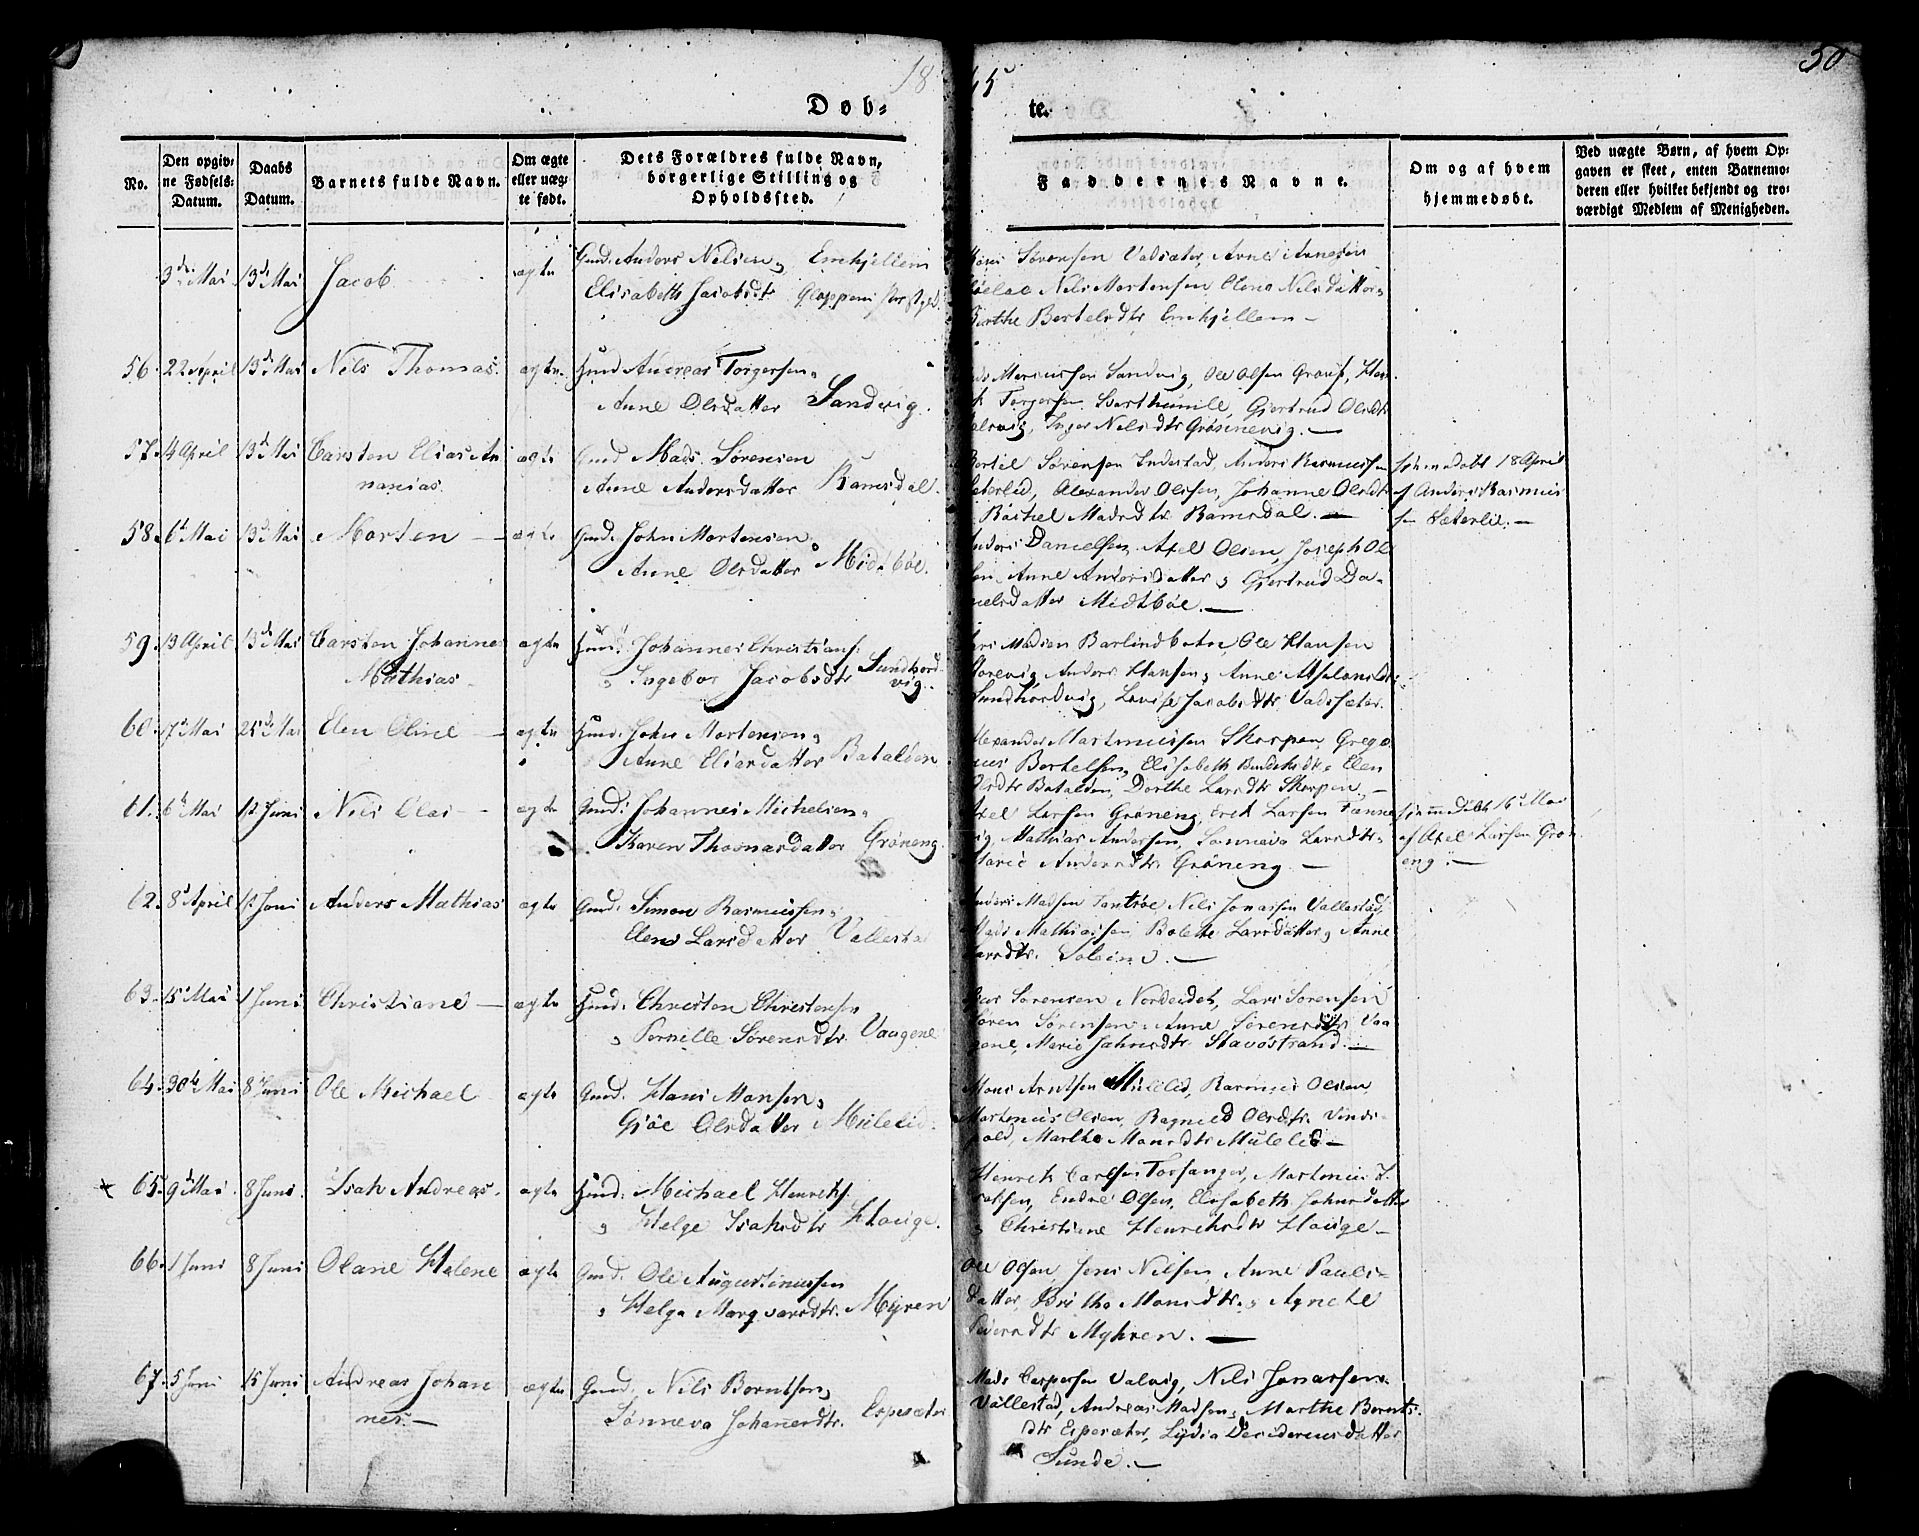 18 45
50
Døb- te.
No.
Den opgiv-
ne Fødsels-
Datum.
Daabs
Datum.
Barnets fulde Navn.
Om ægte
eller uæg-
te født.
Dets Forældres fulde Navn,
borgerlige Stilling og
Opholdssted.
Faddernes Navne.
Om og af hvem
hjemmedøbt.
Ved uægte Børn, af hvem Op-
gaven er skeet, enten Barnemo-
deren eller hvilket bekjendt og tro-
værdigt Medlem af Menigheden.
3 Mai 13 Mai Jacob ægte Gmd: Anders Nilsen, Emhjellem
Elisabeth Jacobsdtr Gloppens Præstgd
Sørensen Vadsæter, Arne Arnesen
Nils Mortensen Elena Nilsdatter,
Berthe Bertelsdtr Emhjellem –
56. 22 April 13 Mai Nils Thomas ægte Huusmd Andreas Torgersen,
Anne Olsdatter Sandvig.
Marcussen Sandvig, Ole Olsen
Torgersen Gjertrud Olsdtr
Inger Nilsdtr Grøsnevig. –
57. 4 April 13 Mai Carsten Elias An
nanias. ægte Gmd Mads Sørensen
Anne Andersdatter Ramsdal.
Bertil Sørensen Indrestad, Anders Rasmussen
Sæterlid, Alexander Olssen, Johanne Olsdtr
Rachel Madsdtr Ramsdal. –
hjemmedøbt 18 April
af Anders Rasmus
sen Sæterlie. –
58. 6 Mai 13 Mai Morten – ægte Gmd: John Mortensen
Anne Olsdatter Midtbøe.
Anders Danielsen, Axel Olsen, Joseph Ol
sen, Anne Andersdatter, Gjertrud Da-
nielsdatter Midtbøe. –
59. 13 April 13 Mai Carsten Johannes
Mathias ægte Huusmd Johannes Christians:
Ingebor Jacobsdtr Sundhord-
vig.
Madsen Barlindbotn, Ole Hansen
Anders Hansen, Anne Absalonsdtr
Sundhordvig, Lovise Jacobsdtr Vadsæter.
60. 7 Mai 25 Mai Elen Oline – ægte Huusmd: John Mortensen,
Anne Eliasdatter Batalden
Alexander Martinussen Skorpen, Grego
rius Bertelsen, Elisabeth Elen
Olsdtr Batalden, Dorthe Larsdtr Skorpen –
61. 6 Mai 1 Juni Nils Elias – ægte Gmd: Johannes Michelsen,
Karen Thomasdatter Grøneng.
Axel Larsen Grøneng, Erik Larsen Fanne
vig, Mathias Andersen, Sønneva Larsdtr,
Marie Andersdtr Grøneng –
hjemmedøbt 16 Mai
af Axel Larsen Grøn
eng. –
62. 8 April 1 Juni Anders Mathias ægte Gmd: Simon Rasmussen,
Elen Larsdatter Vallestad
Anders Madsen Nils Jonassen Vallestad,
Mads Mathiassen Bolethe Larsdatter, Anne
Larsdtr. Solheim. –
63. 15 Mai 1 Juni Christiane – ægte Huusmd: Christen Christensen
Pernille Sørensdtr Vaagene
Sørensen Nordeidet, Lars Sørensen
Søren Sørensen, Anne Sørensdtr Vaa
gene, Marie Jahnsdtr Stavøstrand. –
64. 30 Mai 8 Juni Ole Michael ægte Gmd: Hans Monsen,
Gjøe Olsdatter Mulelid.
Mons Arntsen Mulelid, Rasmus Olsen,
Martinus Olsen, Ragnild Olsdtr. Vinds-
pold, Marthe Monsdtr Mulelid –
65. 9 Mai 8 Juni Isak Andreas. ægte Huusmd: Michael Henriks.
Helge Isaksdtr Hauge.
Henrik Carlsen Torsanger, Martinus
Endre Olsen, Elisabeth Johnsdatter
Christiane Henriksdtr Hauge –
66. 1 Juni 8 Juni Olane Helene ægte Gmd: Ole Augustinussen
Helga Marqvardtr. Myren
Ole Olsen, Jens Nilsen, Anne Pauls-
datter, Brithe Monsdtr., Agnete
Myhren. –
67. 5 Juni 15 Juni Andreas Johan
nes. – ægte Gmd. Nils Berntsen,
Sønneva Johannsdtr. Espesæter
Mads Caspersen Valvig, Nils Jonassen
Vallestad, Andreas Madsen, Marthe Bernts-
dtr Espesæter, Lydia Desideriusdatter
Sunde. –